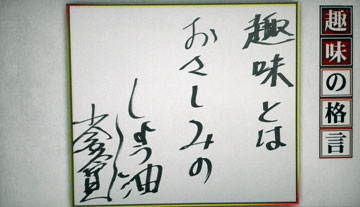 趣味の格言
趣味とは
おさしみの
しょう油